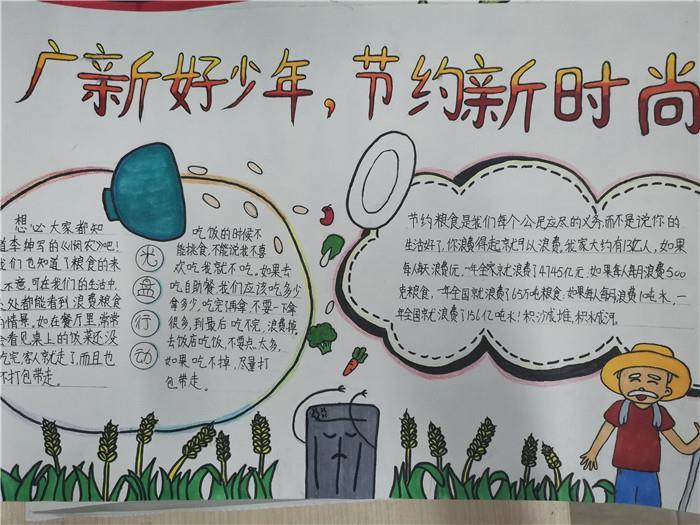 广新好少年，节约新时尚
想必大家都知
道李绅写的《悯农》吧！
我们也知道了粮食的来
不意，可在我们的生活中，
处都能看到浪费粮食
的情景，如在餐厅里，常常
会看见桌上的饭菜还没
吃完客人就走了，而且也
不打包带走。
光盘行动
吃饭的时候不
能挑食，不能说我不喜
欢吃我就不吃。如果去
吃自助餐我们应该吃多少
拿多少，吃完了再拿，不要一下拿
很多，到最后吃不完，浪费掉
去饭店吃饭，不要点太多，
如果吃不掉，尽量打
包带走。
节约粮食是我们每个公民应尽的义务，而不是说你的
生活好了，你浪费得起京就可以浪费，我家大约有13亿人，如果
每人每天浪费1元，一年全家就浪费了4745亿元，如果每人每月浪费500
克粮食，一年全国就浪费了65万吨粮食，如果每人每月浪费1吨水，一
年全国就浪费了156亿吨水！积沙成堆，积水成河。